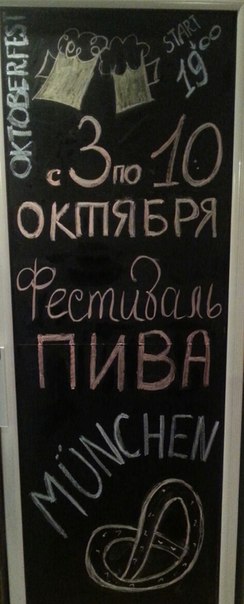 OKTOBERFEST
START
19:00
с 3 по 10
ОКТЯБРЯ
Фестиваль
ПИВА
MÜNCHEN